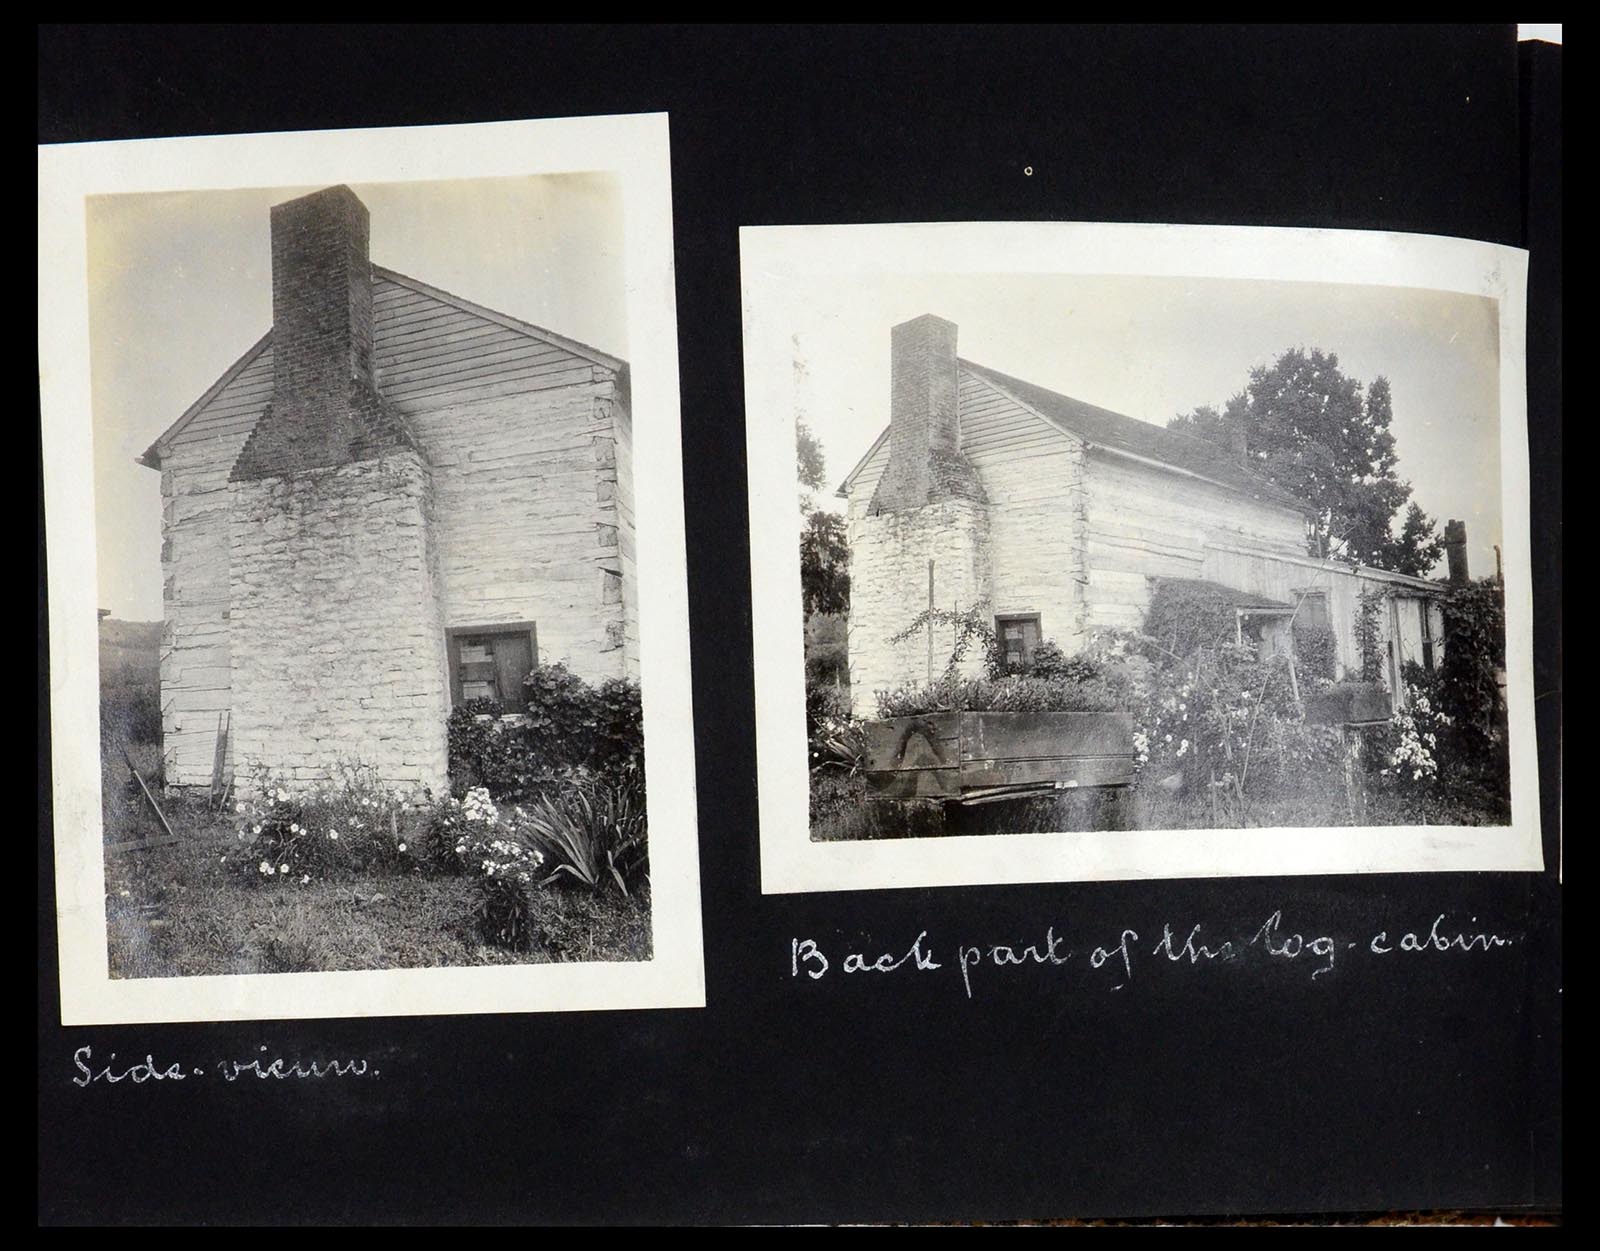 Side-view.
Back part of the log-cabin.